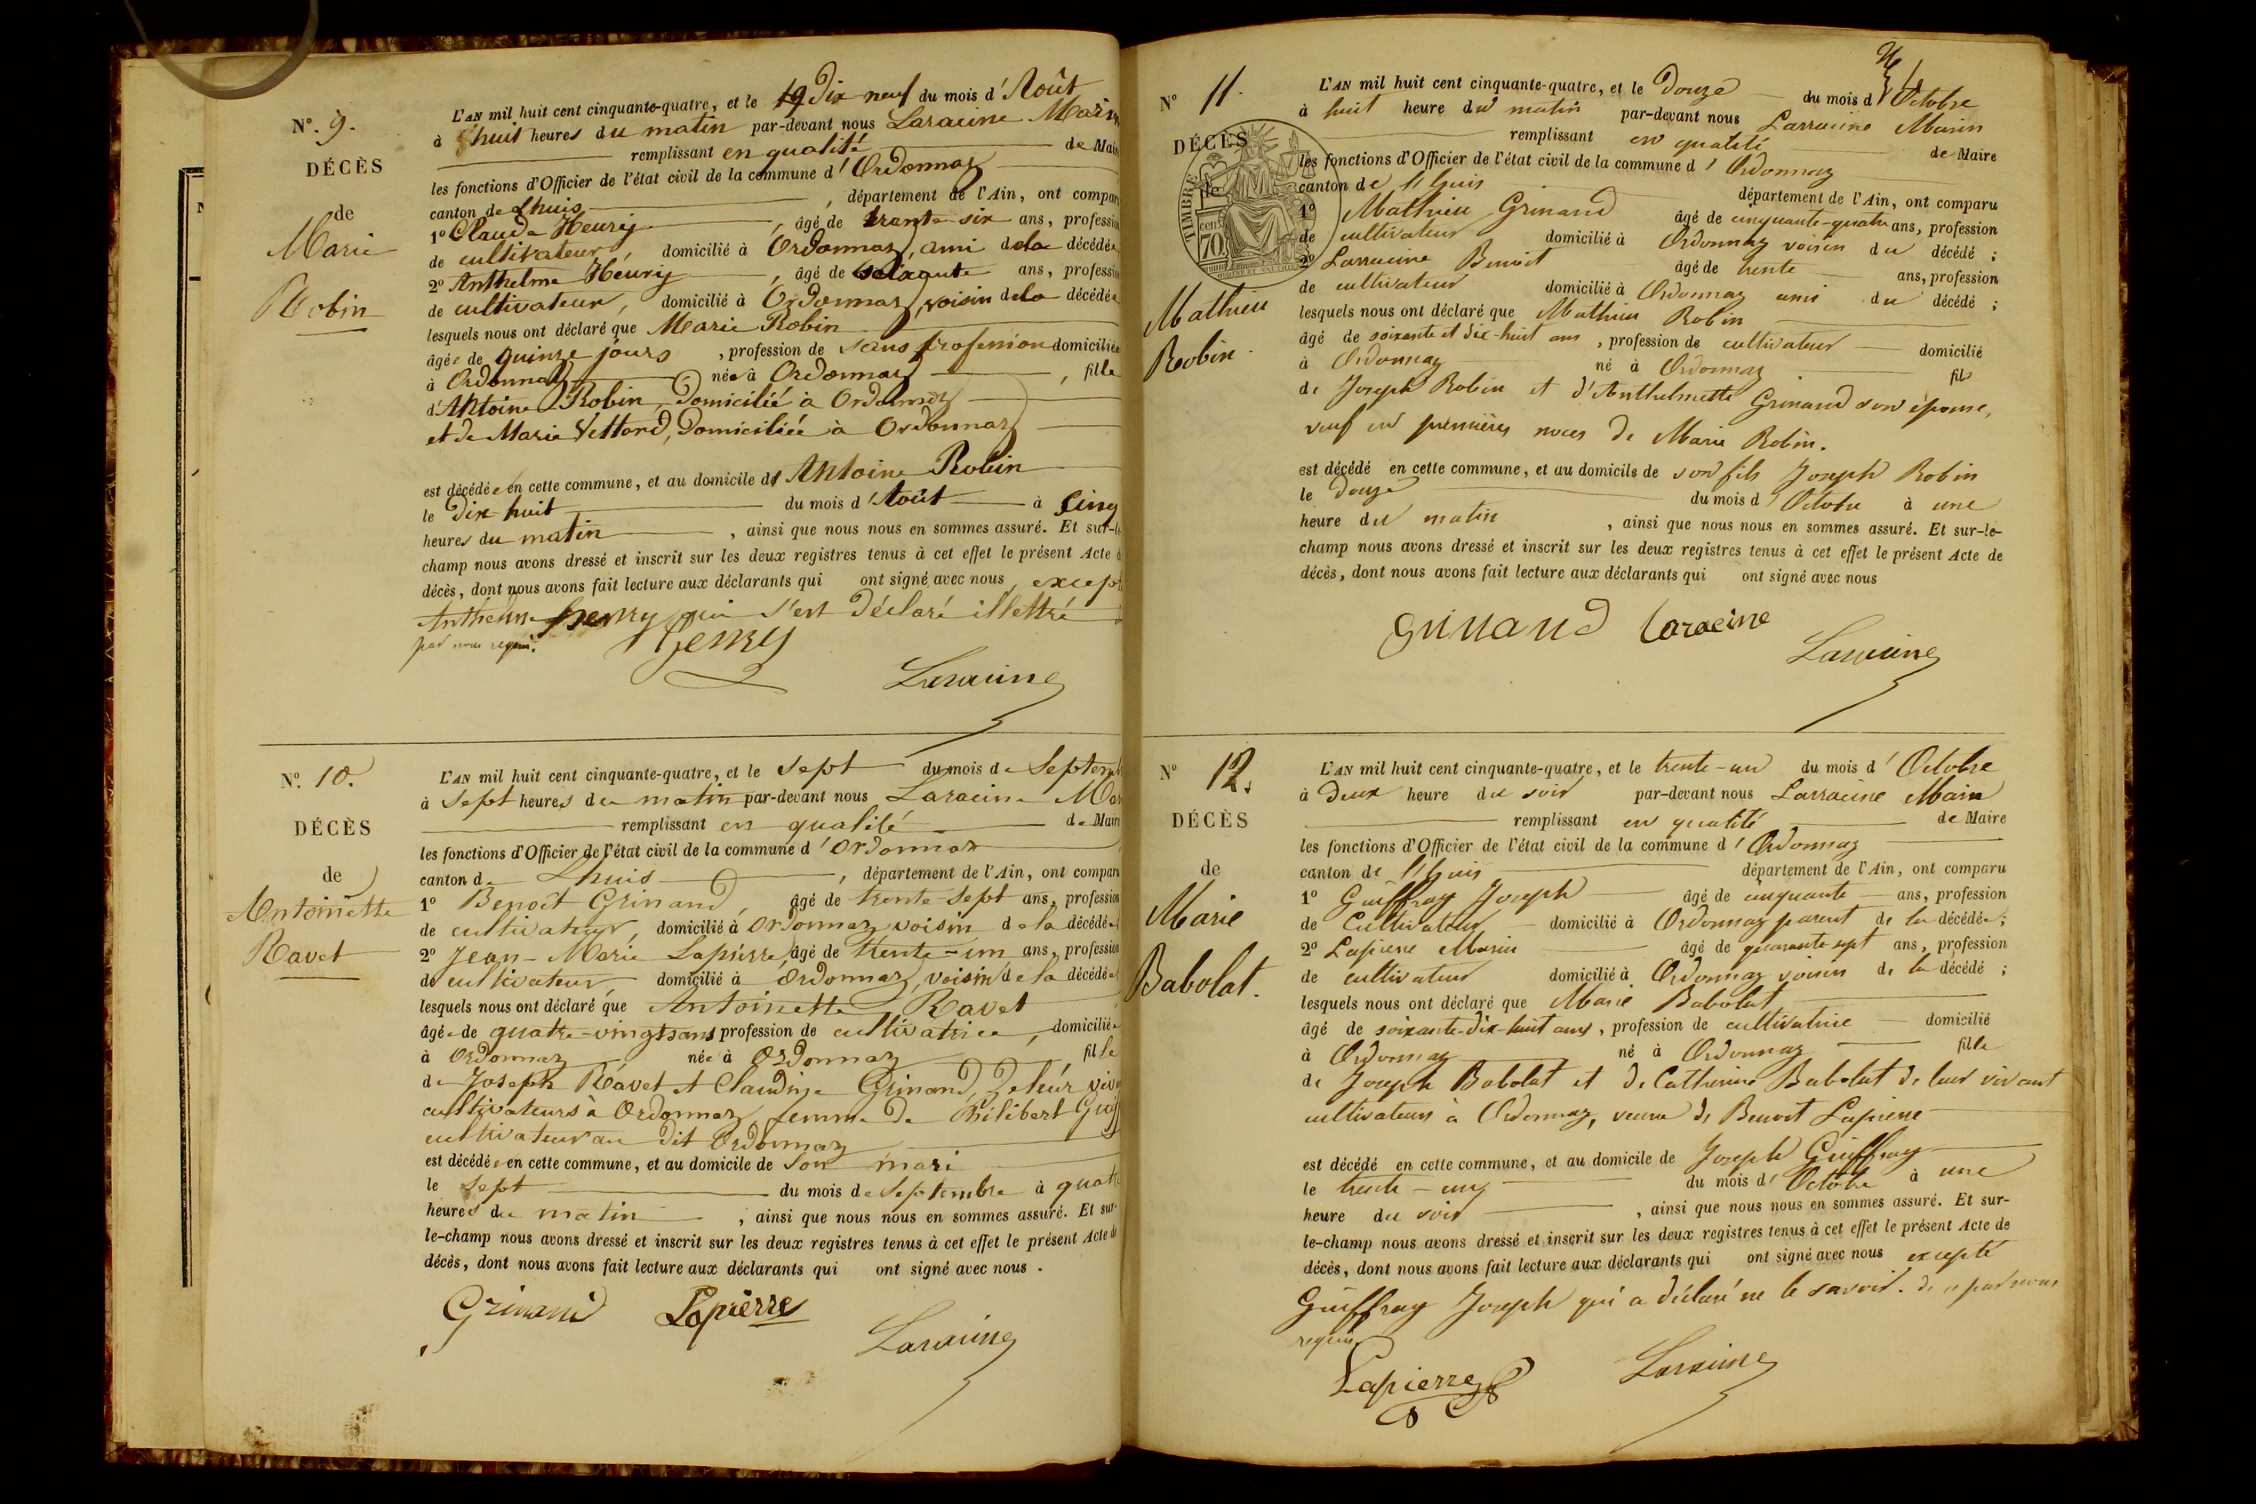 N°. 9.
DÉCÈS
de
Marie
Robin
L'AN mil huit cent cinquante-quatre, et le 19 Dix neuf du mois d'Août
à huit heures du matin par-devant nous Laracine Marin
remplissant en qualité de Mair
les fonctions d'Officier de l'état civil de la commune d'Ordonnaz
canton de Lhuis, département de l'Ain, ont compar
1° Claude Heury, âgé de trante six ans, profession
de cultivateur, domicilié à Ordonnaz, ami dela décédée
2° Anthelme Héury, âgé de soixante ans, profession
de cultivateur, domicilié à Ordonnaz, voisin dela décédée
lesquels nous ont déclaré que Marie Robin
âgée de quinze jours, profession de sans profession domiciliée
à Ordonnaz née à Ordonnaz, fille
d'Antoine Robin, Domicilié à Ordonnaz
et de Marie Vettard, Domiciliée à Ordonnaz
est décédée en cette commune, et au domicile de Antoine Robin
le Dix-huit du mois d'Août à cinq
heures du matin, ainsi que nous nous en sommes assuré. Et sur-le
champ nous avons dressé et inscrit sur les deux registres tenus à cet effet le présent Acte d
décès, dont nous avons fait lecture aux déclarants qui ont signé avec nous, except
Anthelme henry qui s'est Déclaré illettré
par nous requis.
henry
Laracine
N°. 10.
DÉCÈS
de
Antoinette
Ravet
L'AN mil huit cent cinquante-quatre, et le sept du mois de Septemb
à Sept heures du matin par-devant nous Laracine Mar
remplissant en qualité de Mair
les fonctions d'Officier de l'état civil de la commune d'Ordonnaz
canton de Lhuis, département de l'Ain, ont compar
1° Benoît Grinand, âgé de trente-sept ans, profession
de cultivateur, domicilié à Ordonnaz, voisin de la décédée
2° Jean-Marie Lapierre, âgé de trente-un ans, profession
de cultivateur, domicilié à Ordonnaz, voisin de la décédée
lesquels nous ont déclaré que Antoinette Ravet
âgée de quatre-vingts ans profession de cultivatrice, domiciliée
à Ordonnaz née à Ordonnaz fille
de Joseph Ravet et Claudine Grinand, De leur viv
cultivateurs à Ordonnaz femme de Philibert Guif
cultivateur au dit Ordonnaz
est décédée en cette commune, et au domicile de son mari
le sept du mois de Septembre à quatr
heures du matin, ainsi que nous nous en sommes assuré. Et sur-
le-champ nous avons dressé et inscrit sur les deux registres tenus à cet effet le présent Acte de
décès, dont nous avons fait lecture aux déclarants qui ont signé avec nous.
Grinand Lapierre
Laracine
N° 11.
DÉCÈS
de
Mathieu
Robin.
TIMBRE
70
L'AN mil huit cent cinquante-quatre, et le Douze du mois d'Octobre
à huit heure du matin par-devant nous Larracine Marin
remplissant en qualité de Maire
les fonctions d'Officier de l'état civil de la commune d'Ordonnaz
canton de l'huis département de l'Ain, ont comparu
1° Mathieu Grinand âgé de cinquante-quatre ans, profession
de cultivateur domicilié à Ordonnaz voisin du décédé;
2° Larracine Benoit âgé de trente ans, profession
de cultivateur domicilié à Ordonnaz ami du décédé;
lesquels nous ont déclaré que Mathieu Robin
âgé de soixante et dix-huit ans, profession de cultivateur domicilié
à Ordonnaz né à Ordonnaz fils
de Joseph Robin et d'Anthelmette Grinand son épouse,
veuf en premières noces de Marie Robin.
est décédé en cette commune, et au domicile de son fils Joseph Robin
le Douze du mois d'Octobre à une
heure du matin, ainsi que nous nous en sommes assuré. Et sur-le-
champ nous avons dressé et inscrit sur les deux registres tenus à cet effet le présent Acte de
décès, dont nous avons fait lecture aux déclarants qui ont signé avec nous
Grinand Laracine
Laracine
N° 12.
DÉCÈS
de
Marie
Babolat.
L'AN mil huit cent cinquante-quatre, et le trente-un du mois d'Octobre
à Deux heure du soir par-devant nous Larracine Marin
remplissant en qualité de Maire
les fonctions d'Officier de l'état civil de la commune d'Ordonnaz
canton de l'huis département de l'Ain, ont comparu
1° Guiffray Joseph âgé de cinquante ans, profession
de Cultivateur domicilié à Ordonnaz parent de la décédée;
2° Lapierre Marin âgé de quarante-sept ans, profession
de cultivateur domicilié à Ordonnaz voisin de la décédé;
lesquels nous ont déclaré que Marie Babolat
âgé de soixante-dix-huit ans, profession de cultivatrice domicilié
à Ordonnaz né à Ordonnaz fille
de Joseph Babolat et de Catherine Babolat de leur vivant
cultivateurs à Ordonnaz, veuve de Benoit Lapierre
est décédé en cette commune, et au domicile de Joseph Guiffray
le trente-un du mois d'Octobre à une
heure du soir, ainsi que nous nous en sommes assuré. Et sur-
le-champ nous avons dressé et inscrit sur les deux registres tenus à cet effet le présent Acte de
décès, dont nous avons fait lecture aux déclarants qui ont signé avec nous excepté
Guiffray Joseph qui a déclaré ne le savoir. de ce par nous
requis
Lapierre
Laracine